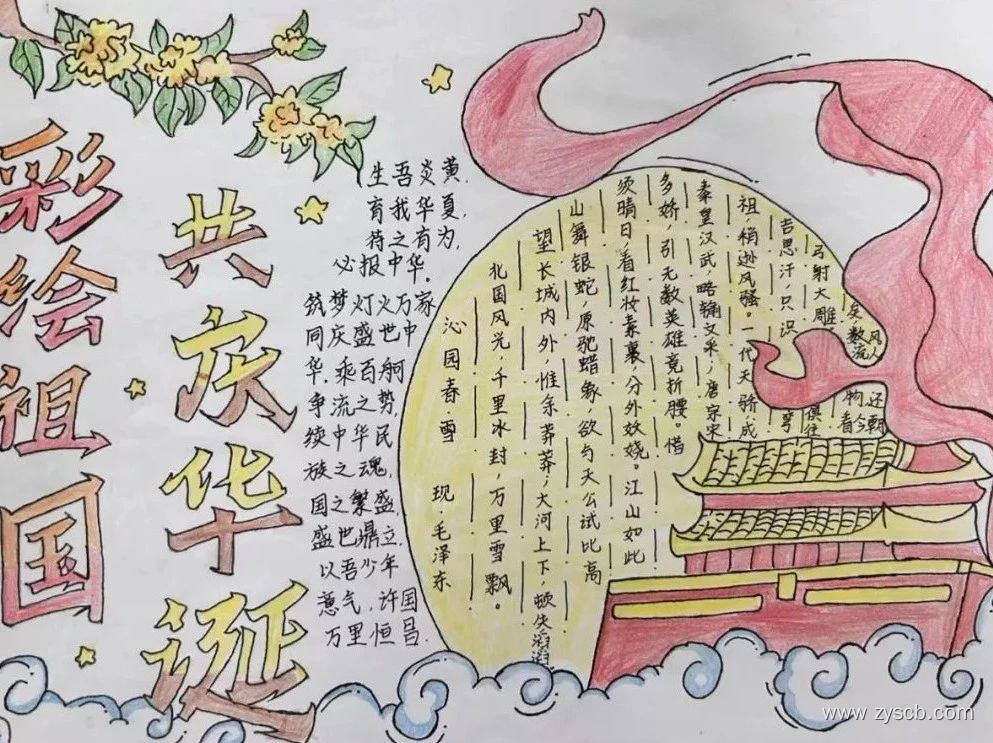 彩绘祖国
共庆华诞
生吾炎黄,
育我华夏,
待之有为,
必报中华。
筑梦灯火万家
同庆盛世中
华。乘百舸
争流之势,
续中华民
族之魂,
国之繁盛,
盛世鼎立,
以吾少年
意气,许国
万里恒昌.
沁园春·雪 现 毛泽东
北国风光,千里冰封,万里雪飘。
望长城内外,惟余莽莽;大河上下,顿失滔滔
山舞银蛇,原驰蜡象,欲与天公试比高
须晴日,看红妆素裹,分外妖娆。江山如此
多娇,引无数英雄竞折腰。惜
秦皇汉武,略输文采;唐宗宋
祖,稍逊风骚。一代天骄,成
吉思汗,只识弯
弓射大雕
俱往
矣,数风
流人
物还
看今朝
www.zyscb.com